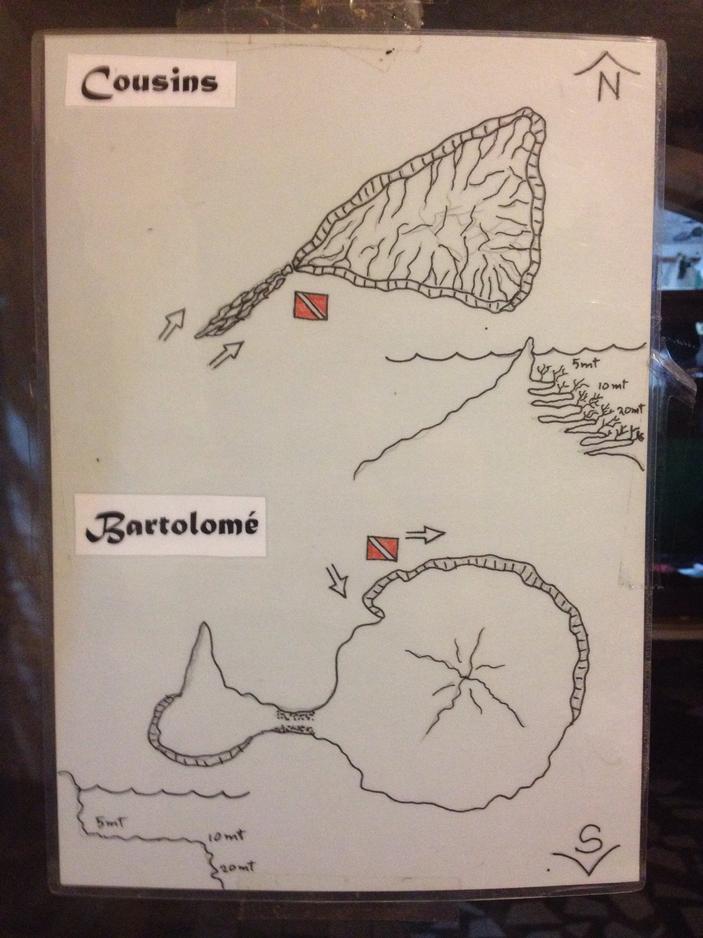 Cousins
N
5mt
10mt
20mt
Bartolomé
5mt
10mt
20mt
S